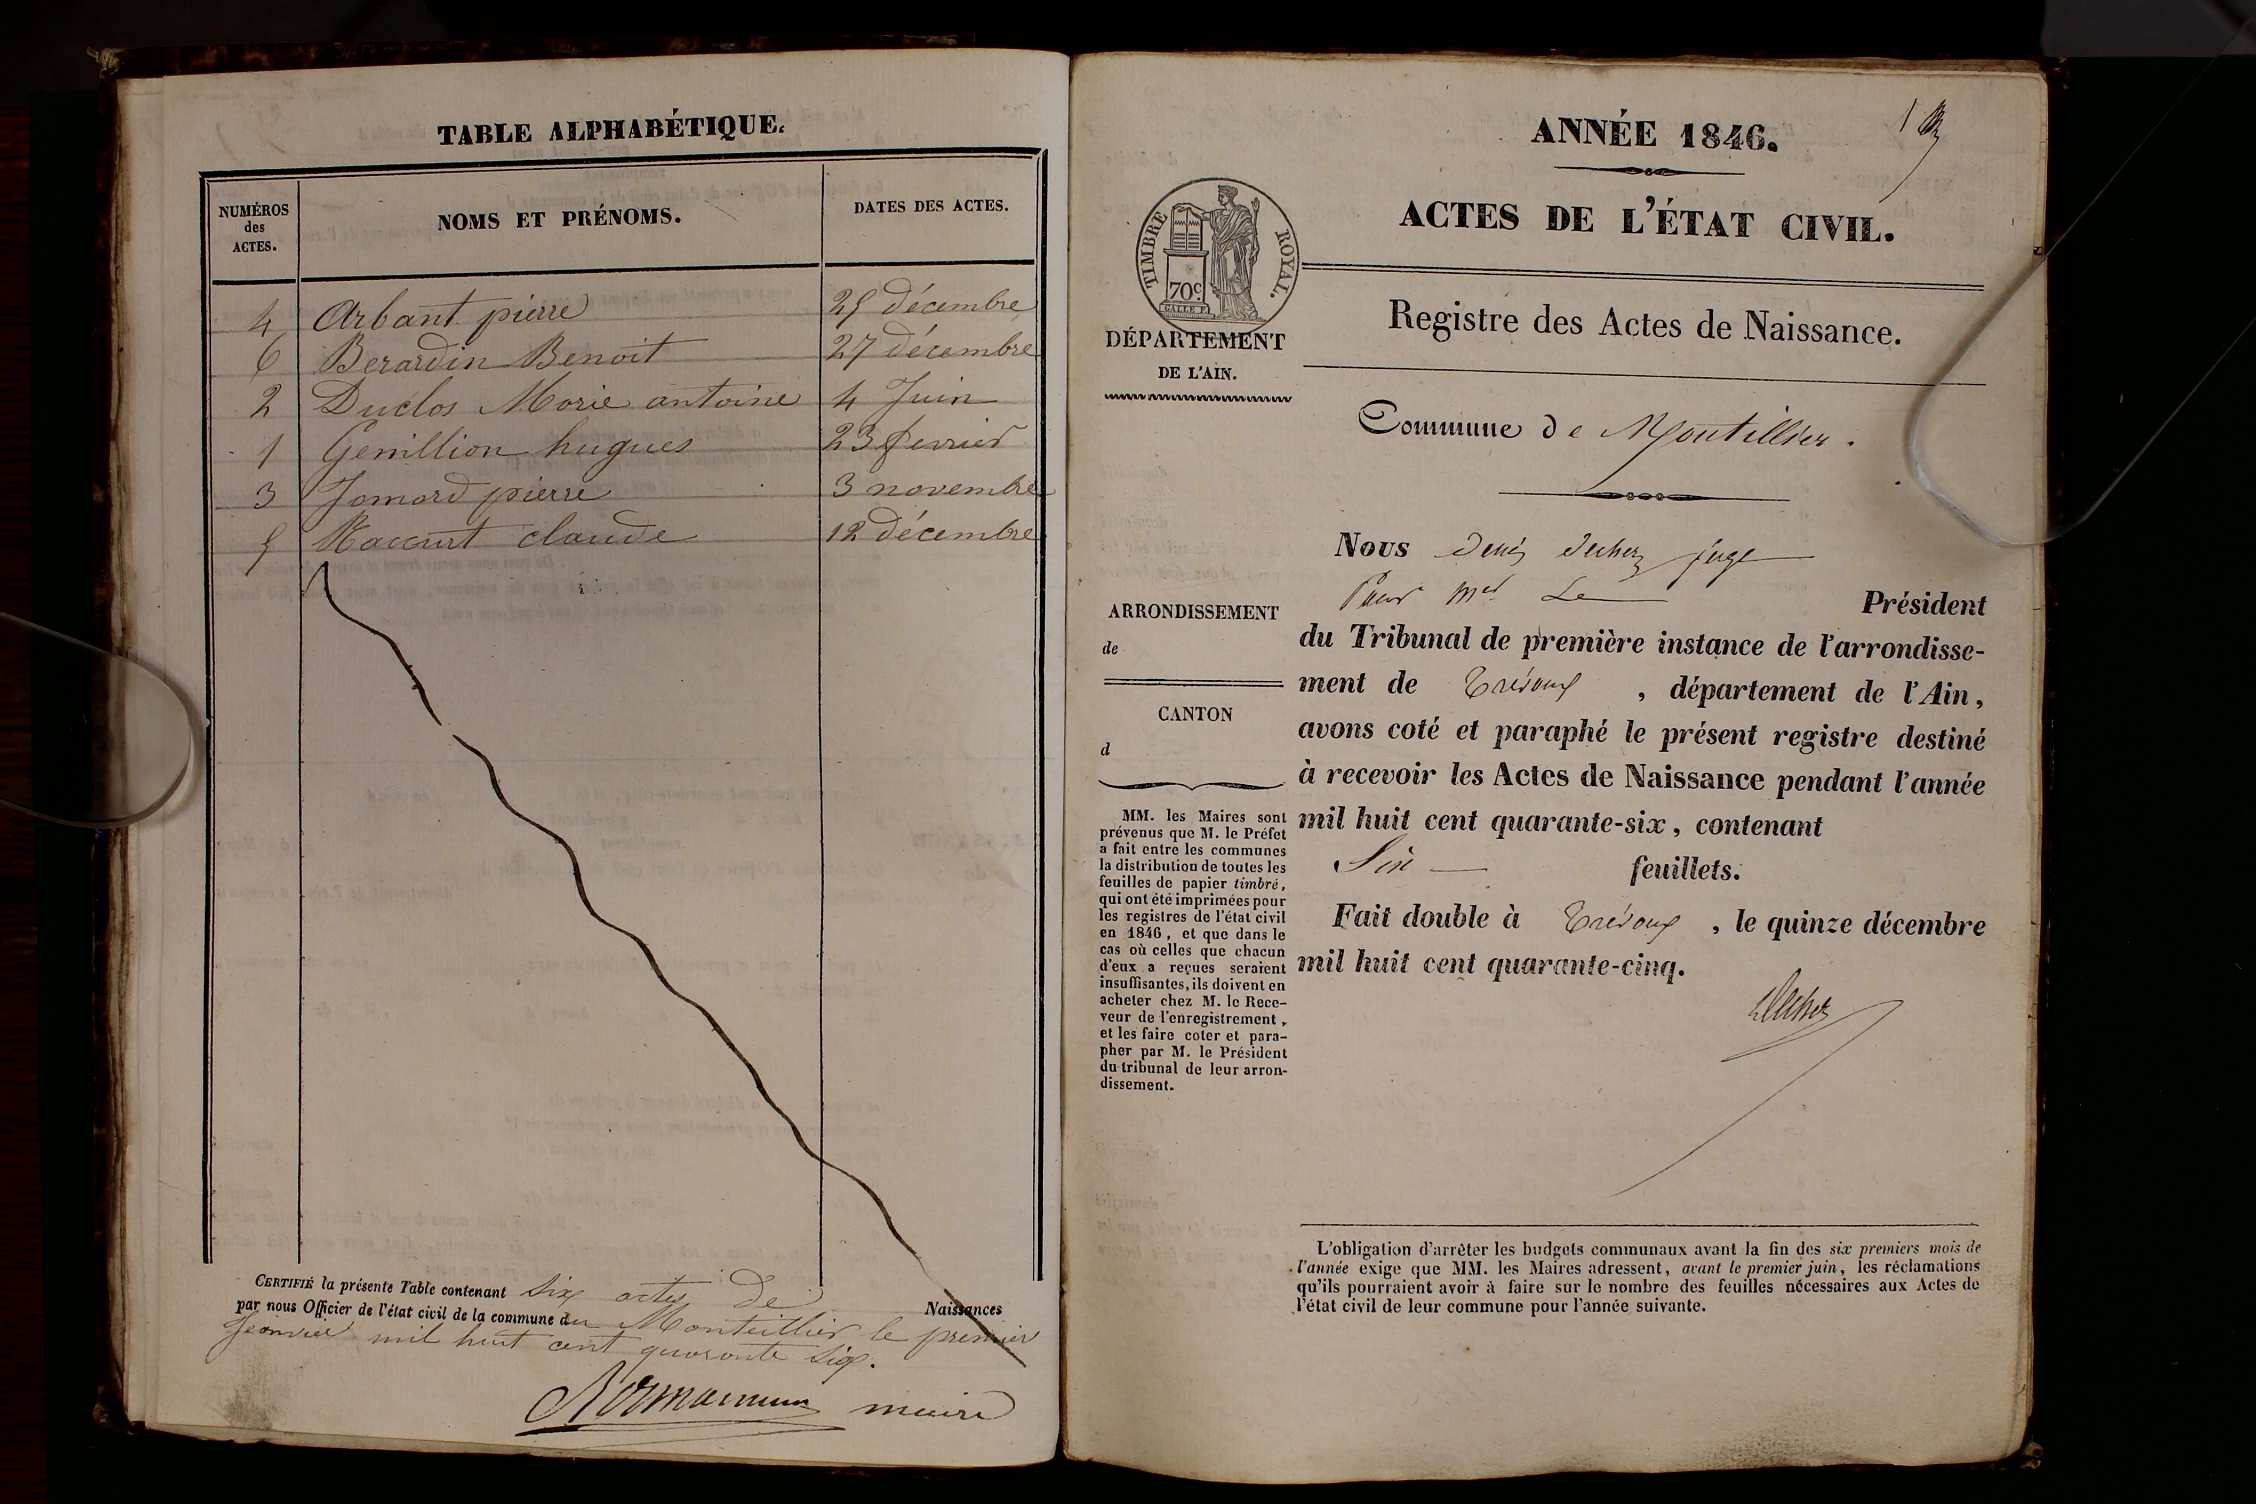 TABLE ALPHABÉTIQUE.
NUMÉROS des ACTES.
NOMS ET PRÉNOMS.
DATES DES ACTES.
4 Arbant pierre 25 décembre
6 Berardin Benoit 27 décembre
2 Duclos Marie antoine 4 Juin
1 Genillion hugues 23 fevrier
3 Jomard pierre 3 novembre
5 Raccurt claude 12 décembre
CERTIFIÉ la présente Table contenant six actes de Naissances
par nous Officier de l'état civil de la commune du Monteillier le premier
Janvier mil huit cent quaronte six.
maire
ANNÉE 1846.
1
ACTES DE L'ÉTAT CIVIL.
TIMBRE ROYAL.
70c.
DÉPARTEMENT
DE L'AIN.
Registre des Actes de Naissance.
Commune de Montillier.
Nous juge
Pour Mr Le Président
du Tribunal de première instance de l'arrondisse-
ment de Trévoux, département de l'Ain,
avons coté et paraphé le présent registre destiné
à recevoir les Actes de Naissance pendant l'année
mil huit cent quarante-six, contenant
Six feuillets.
Fait double à Trévoux, le quinze décembre
mil huit cent quarante-cinq.
ARRONDISSEMENT
de
CANTON
d
MM. les Maires sont
prévenus que M. le Préfet
a fait entre les communes
la distribution de toutes les
feuilles de papier timbré,
qui ont été imprimées pour
les registres de l'état civil
en 1846, et que dans le
cas où celles que chacun
d'eux a reçues seraient
insuffisantes, ils doivent en
acheter chez M. le Rece-
veur de l'enregistrement,
et les faire coter et para-
pher par M. le Président
du tribunal de leur arron-
dissement.
L'obligation d'arrêter les budgets communaux avant la fin des six premiers mois de
l'année exige que MM. les Maires adressent, avant le premier juin, les réclamations
qu'ils pourraient avoir à faire sur le nombre des feuilles nécessaires aux Actes de
l'état civil de leur commune pour l'année suivante.